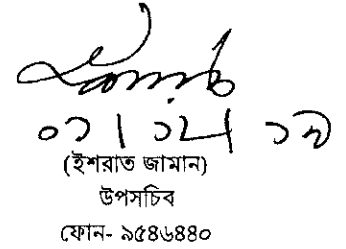 ০১।১২।১৯
(ইশরাত জামান)
উপসচিব
ফোন- ৯৫৪৬৪৪০